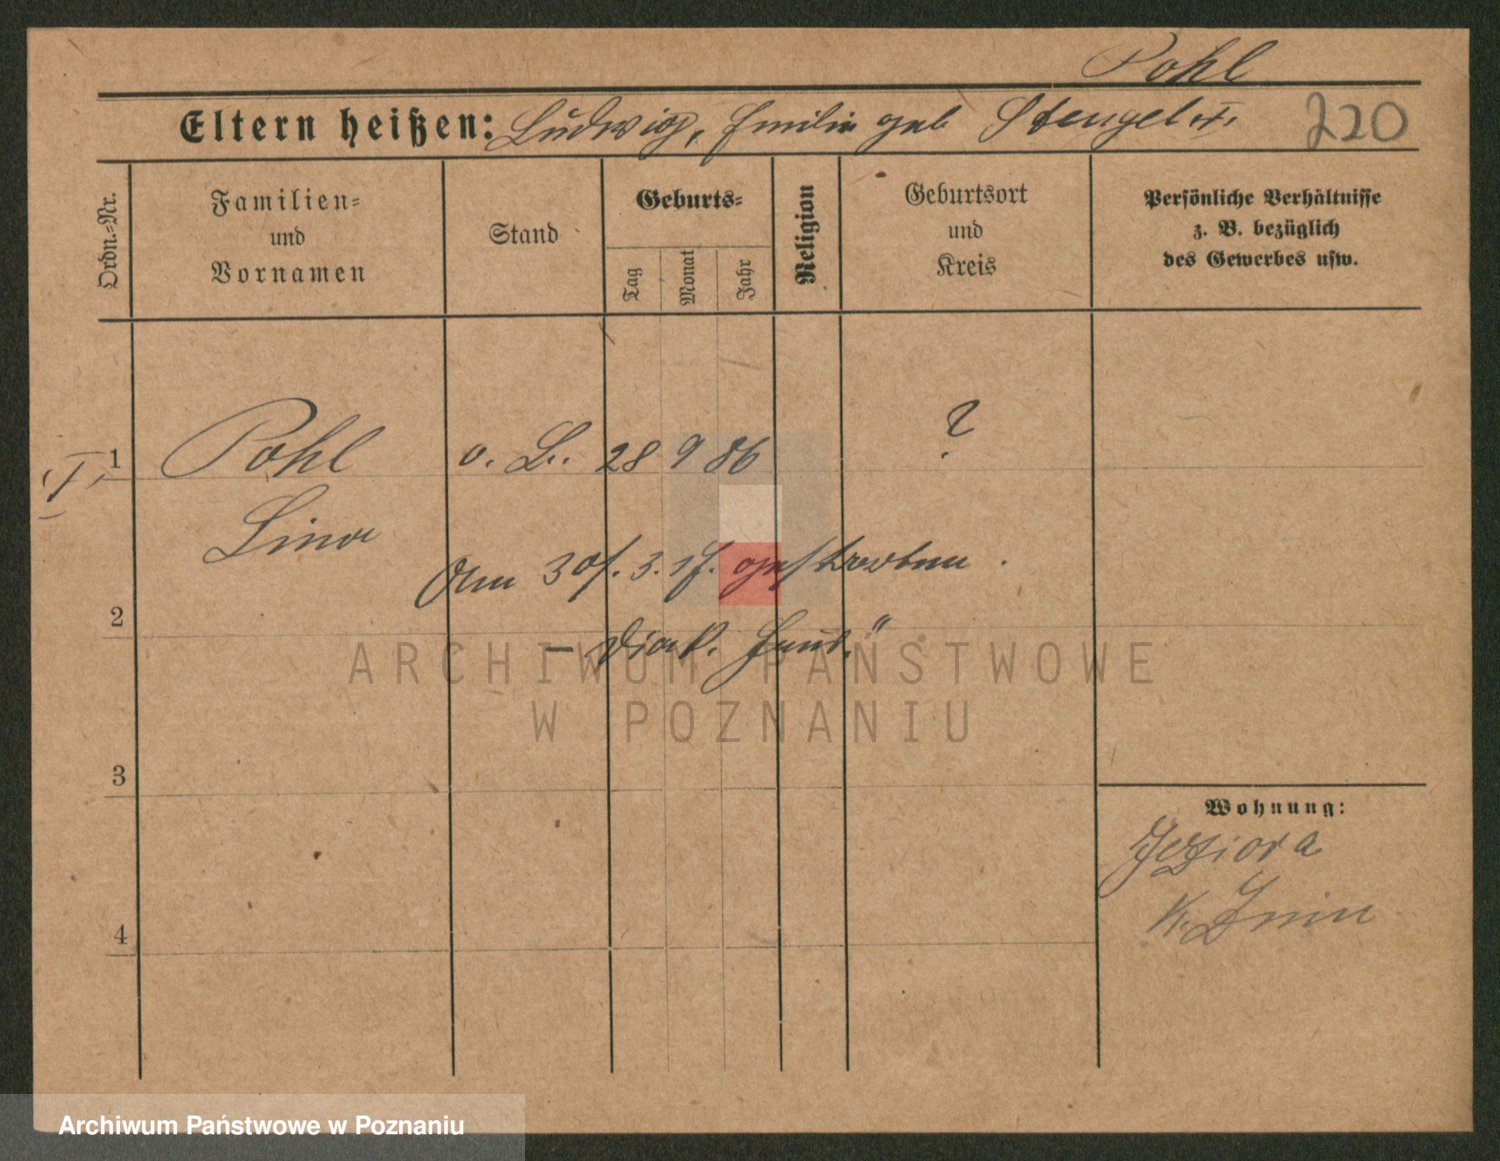 Pohl
Eltern heißen: Ludwig, Emilie geb Stengel 220
Ordn.-Nr.
Familien-
und
Vornamen
Stand
Geburts-
Tag
Monat
Jahr
Religion
Geburtsort
und
Kreis
Persönliche Verhältnisse
z. B. bezüglich
des Gewerbes usw.
1 Pohl o. B. 28 9 86 ?
Lina
Am 30/. 3. 17. gestorben.
2
– Diak. Haus."
ARCHIWUM PAŃSTWOWE
W POZNANIU
3
Wohnung:
Jeziora
K. Znin
4
Archiwum Państwowe w Poznaniu